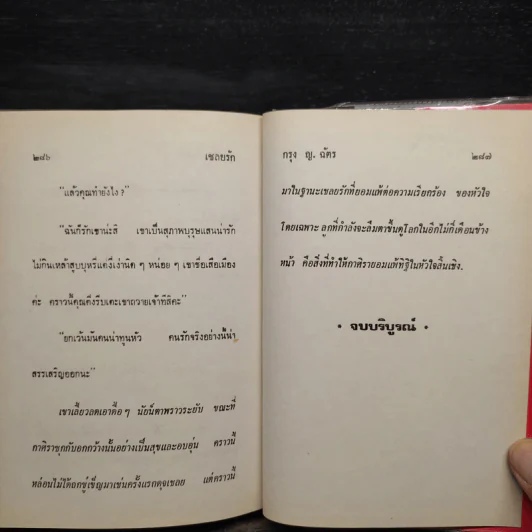 ๒๘๖
เชลยรัก
"แล้วคุณทำยังไง?"
"ฉันก็รักเขาน่ะสิ เขาเป็นสุภาพบุรุษแสนน่ารัก
ไม่กินเหล้าสูบบุหรี่แค่งี่เง่านิด ๆ หน่อย ๆ เขาชื่อเสือเมือง
ค่ะ คราวนี้คุณคึงรีบเตะเขาถวายเจ้าทีสิคะ"
"ยกเว้นมันคนน่าทูนหัว คนรักจริงอย่างนี้น่า
สรรเสริญออกนะ"
เขาเลี้ยวลดเอาดื้อ ๆ นัยน์ตาพราวระยับ ขณะที่
กาศิราซุกกับอกกว้างนั้นอย่างเป็นสุขและอบอุ่น คราวนี้
หล่อนไม่ได้ถูกขู่เข็ญมาเช่นครั้งแรกดุจเชลย แต่คราวนี้
กรุง ญ. ฉัตร
๒๘๗
มาในฐานะเชลยรักที่ยอมแพ้ต่อความเรียกร้อง ของหัวใจ
โดยเฉพาะ ลูกที่กำลังจะลืมตาขึ้นดูโลกในอีกไม่กี่เดือนข้าง
หน้า คือสิ่งที่ทำให้กาศิรายอมแพ้ทิฐิในหัวใจสิ้นเชิง.
• จบบริบูรณ์ •